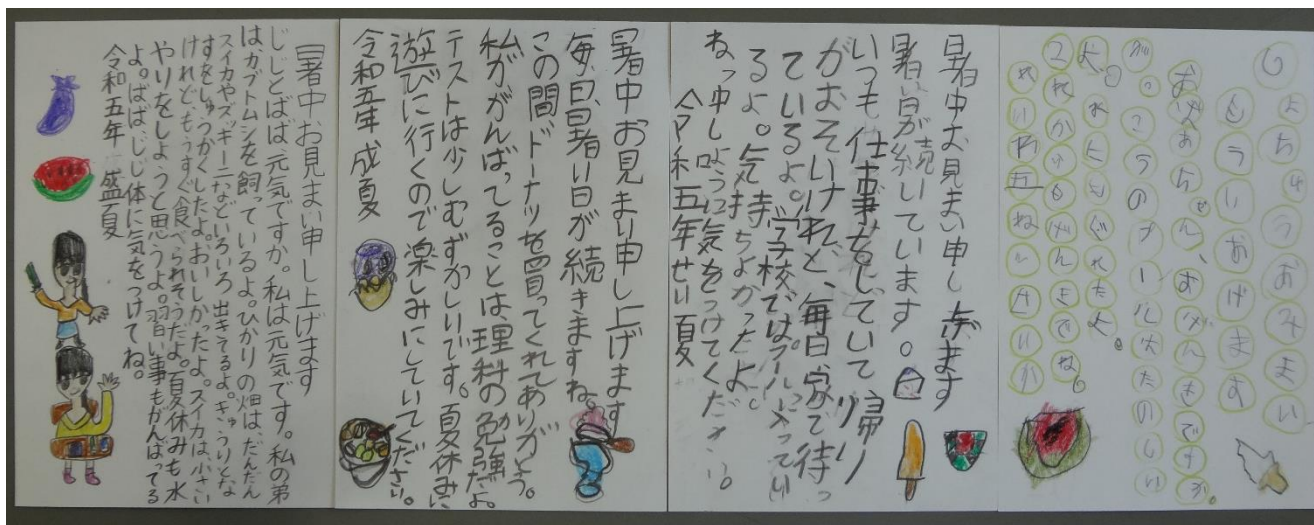 しょちゅうおみまい
もうしおげます
おばあちゃん、おげんきですか。
たのしい
よ。もぐれたよ。
これからもげんきでね。
れいわ五ねんせいか
暑中お見まい申し上げます
暑い日が続いています。
いつも仕事をしていて、帰り
がおそいけれど、毎日家で待っ
ているよ。学校ではプール入ってい
るよ。気持ちよかったよ。
ねっ中しょうに気をつけてください。
令和五年せい夏
暑中お見まい申し上げます
毎日、暑い日が続きますね。
この間ドーナツを買ってくれてありがとう。
私ががんばってることは理科の勉強だよ。
テストは少しむずかしいです。夏休みに
遊びに行くので楽しみにしていてください。
令和五年成夏
暑中お見まい申し上げます
じじとばば、元気ですか。私は元気です。私の弟
は、カブトムシを飼っているよ。ひかりの畑は、だんだん
スイカやズッキーニなどいろいろ出きてるよ。きゅうりとな
すをしゅうかくしたよ。おいしかったよ。スイカは小さい
けれど、もうすぐ食べられそうだよ。夏休みも水
やりをしようと思うよ。習い事もがんばってる
よ。ばば、じじ体に気をつけてね。
令和五年 盛夏